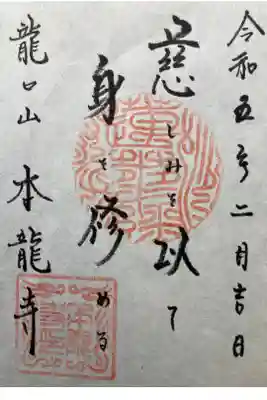 令和五年二月吉日
慈しみを以て
身を修める
龍口山 本龍寺